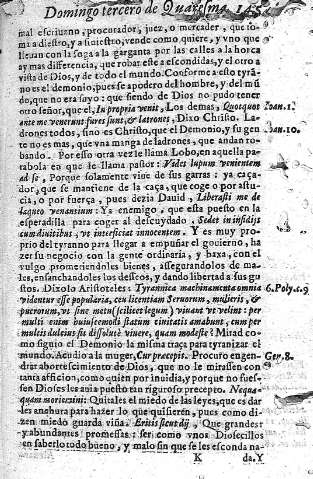 Domingo tercero de Quaresma. 145
mal escriuano, procurador, juez, o mercader, que to-
ma a diestro, y a siniestro, vende como quiere, y vno que
lleuan con la soga a la garganta por las calles a la horca
ay mas differencia, que robar este a escondidas, y el otro a
vista de Dios, y de todo el mundo. Conforme a esto tyra-
no es el demonio, pues se apodera del hombre, y del mũ
do, que no era suyo: que siendo de Dios no pudo tener
otro señor, que el, In propria venit, Los demas, Quotquot Ioan. 1.
ante me venerunt fures sunt, & latrones, Dixo Christo. La-
drones todos, sino es Christo, que el Demonio, y su gen Ioan. 10.
te no es mas, que vna manga de ladrones, que andan ro-
bando. Por esso otra vez le llama Lobo, en aquella pa-
rabola en que se llama pastor: Videt lupum venientem
ad se, Porque solamente viue de sus garras: ya caça-
dor, que se mantiene de la caça, que coge o por astu-
cia, o por fuerça, pues dezia Dauid, Liberasti me de
laqueo venantium: Ya enemigo, que esta puesto en la
esperadilla para coger al descuydado, Sedet in insidijs
cum diuitibus, vt interficiat innocentem. Y es muy pro-
prio del tyranno para llegar a empuñar el gouierno, ha
zer su negocio con la gente ordinaria, y baxa, con el
vulgo prometiendoles bienes, assegurandolos de ma-
les, ensanchandoles los desseos, y dando libertad a sus gu
stos. Dixolo Aristoteles: Tyrannica machinamenta omnia 6. Poly. c. 9
videntur esse popularia, ceu licentiam Seruorum, mulieris, &
puerorum, vt sine metu (scilicet legum) viuant vt velint: per
multi enim huiuscemodi statum ciuitatis amabunt, cum per
multis dulcius sit dissolute viuere, quam modeste: Mirad co
mo siguio el Demonio la misma traça para tyranizar el
mundo. Acudio a la muger, Cur præcepit. Procuro engen- Gen. 8.
drar aborrescimiento de Dios, que no le mirassen con
tanta afficion, como quien por inuidia, y porque no fues-
sen Dioses les auia puesto tan riguroso precepto. Nequa-
quam moriemini: Quitales el miedo de las leyes, que es dar
les anchura para hazer lo que quisieren, pues como di-
zen miedo guarda viña. Eritis sicut dij, Que grandes
y abundantes promessas: ser como vnos Diosecillos
en saberlo todo bueno, y malo sin que se les esconda na
K da, Y